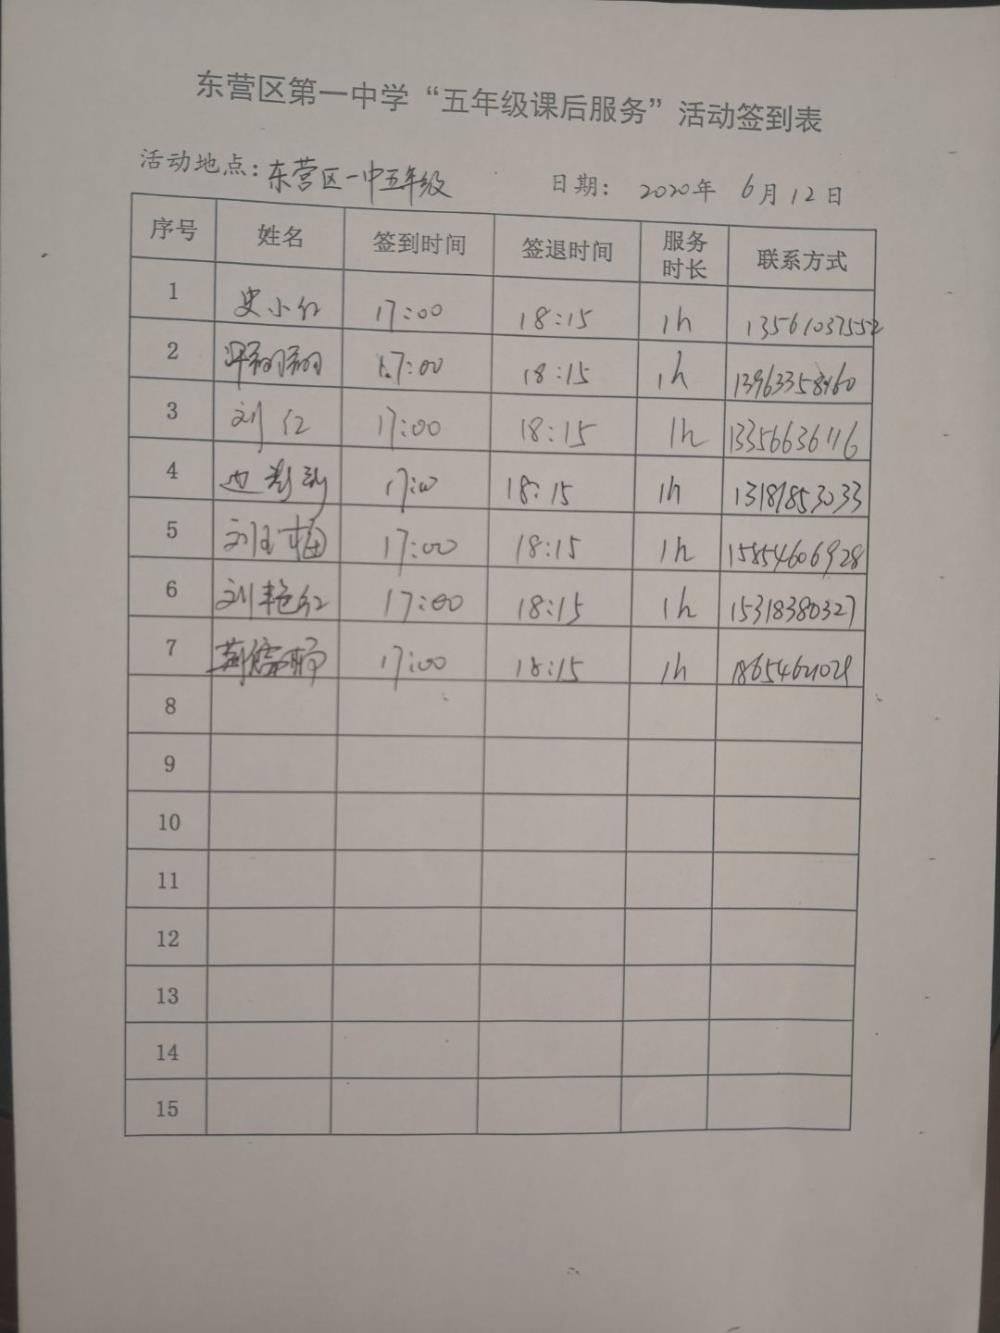 东营区第一中学“五年级课后服务”活动签到表
活动地点：东营区一中五年级 日期： 2020年 6月12日
序号 姓名 签到时间 签退时间 服务时长 联系方式
1 史小红 17:00 18:15 1h 13561037552
2 17:00 18:15 1h
3 刘红 17:00 18:15 1h 13356636116
4 17:00 18:15 1h
5 刘玉梅 17:00 18:15 1h 15854606928
6 刘艳红 17:00 18:15 1h 15318380327
7 17:00 18:15 1h
8
9
10
11
12
13
14
15